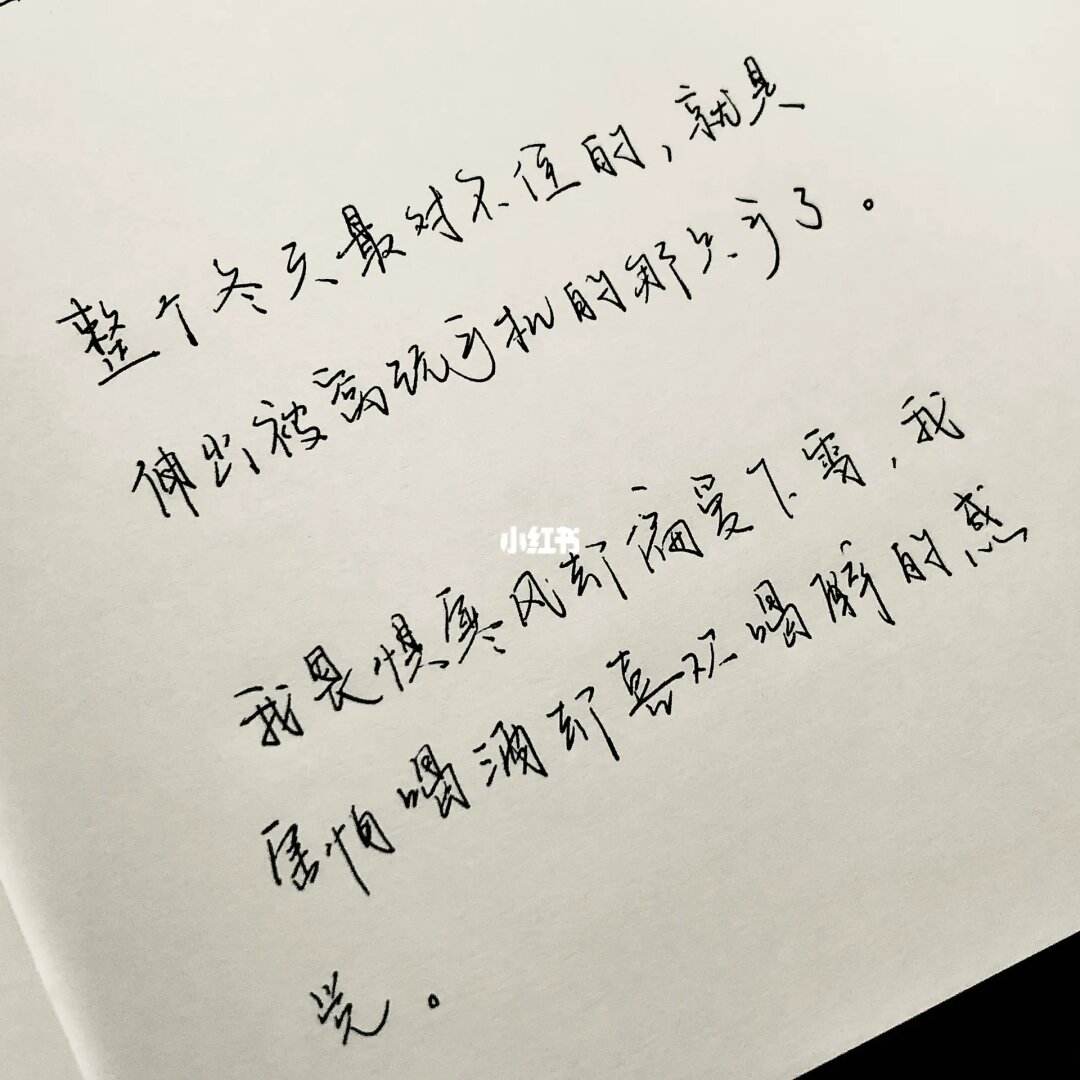 整个冬天最对不住的，就是
伸出被窝玩手机的那只手了。
小红书
我畏惧寒风却偏爱下雪，我
害怕喝酒却喜欢喝醉的感
觉。